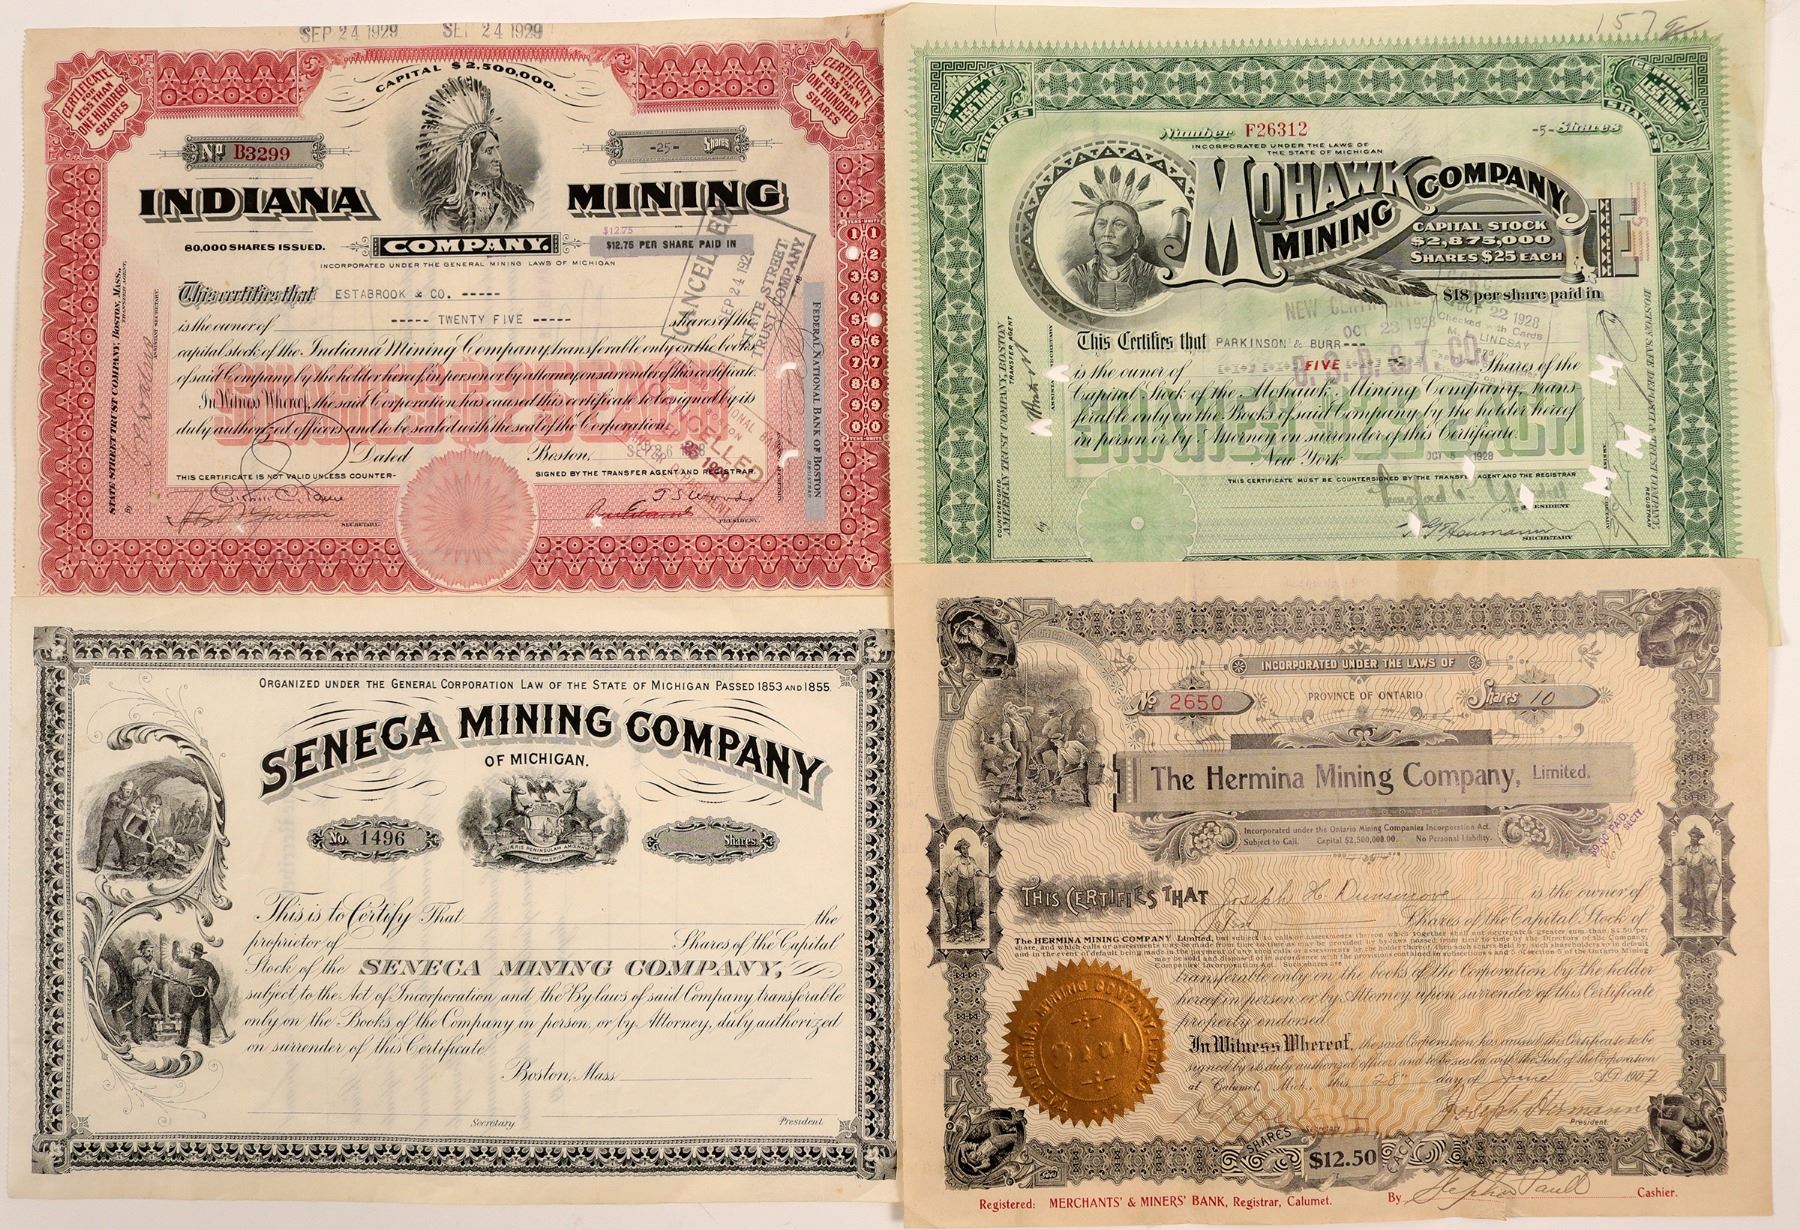 SEP 24 1929 SEP 24 1929
CAPITAL $2,500,000.
CERTIFICATE FOR LESS THAN ONE HUNDRED SHARES
CERTIFICATE FOR LESS THAN ONE HUNDRED SHARES
No B3299
-25- Shares
INDIANA MINING
COMPANY.
80,000 SHARES ISSUED.
$12.75
$12.75 PER SHARE PAID IN
INCORPORATED UNDER THE GENERAL MINING LAWS OF MICHIGAN
CANCELLED
SEP 24 1929
STATE STREET TRUST COMPANY
This certifies that ESTABROOK & CO. -----
is the owner of ----- TWENTY FIVE ----- shares of the
capital stock of the Indiana Mining Company, transferable only on the books
of said Company by the holder hereof, in person or by attorney, on surrender of this certificate.
In Witness Whereof, the said Corporation has caused this certificate to be signed by its
duly authorized officers and to be sealed with the seal of the Corporation.
Dated Boston,
THIS CERTIFICATE IS NOT VALID UNLESS COUNTER-
SIGNED BY THE TRANSFER AGENT AND REGISTRAR.
SECRETARY.
PRESIDENT.
STATE STREET TRUST COMPANY, BOSTON, MASS.,
TRANSFER AGENT,
By
ASSISTANT SECRETARY.
FEDERAL NATIONAL BANK OF BOSTON
REGISTRAR
CANCELLED
157
SHARES
SHARES
Number F26312
-5- Shares
INCORPORATED UNDER THE LAWS OF
THE STATE OF MICHIGAN
MOHAWK MINING COMPANY
CAPITAL STOCK
$2,875,000
SHARES $25 EACH
$18 per share paid in
OCT 22 1928
Checked with Cards
M. LINDSAY
OCT 23 1928
This Certifies that PARKINSON & BURR---
is the owner of FIVE Shares of the
Capital Stock of the Mohawk Mining Company, trans-
ferable only on the Books of said Company by the holder hereof
in person or by Attorney on surrender of this Certificate.
New York
OCT 5 1928
THIS CERTIFICATE MUST BE COUNTERSIGNED BY THE TRANSFER AGENT AND THE REGISTRAR
VICE PRESIDENT
SECRETARY
COUNTERSIGNED
AMERICAN TRUST COMPANY, BOSTON
TRANSFER AGENT
by
REGISTRAR
ORGANIZED UNDER THE GENERAL CORPORATION LAW OF THE STATE OF MICHIGAN PASSED 1853 AND 1855.
SENECA MINING COMPANY
OF MICHIGAN.
No. 1496
Shares.
This is to Certify That the
proprietor of Shares of the Capital
Stock of the SENECA MINING COMPANY,
subject to the Act of Incorporation and the By laws of said Company, transferable
only on the Books of the Company in person, or by Attorney, duly authorized
on surrender of this Certificate.
Boston, Mass.
Secretary.
President.
INCORPORATED UNDER THE LAWS OF
PROVINCE OF ONTARIO
No 2650
Shares 10
The Hermina Mining Company, Limited.
Incorporated under the Ontario Mining Companies Incorporation Act.
Subject to Call. Capital $2,500,000.00. No Personal Liability.
THIS CERTIFIES THAT Joseph H. Dunsmore is the owner of
Ten Shares of the Capital Stock of
The HERMINA MINING COMPANY Limited, but subject to calls or assessments
transferable only on the books of the Corporation by the holder
hereof in person or by Attorney upon surrender of this Certificate
properly endorsed.
In Witness Whereof, the said Corporation has caused this Certificate to be
signed by its duly authorized officers and to be sealed with the Seal of the Corporation
at Calumet, Mich., this 28" day of June 1907
Joseph Hermann
President.
Secretary
HERMINA MINING COMPANY LIMITED
Seal
SHARES $12.50 EACH
Registered: MERCHANTS' & MINERS' BANK, Registrar, Calumet. By Stephen Paull Cashier.